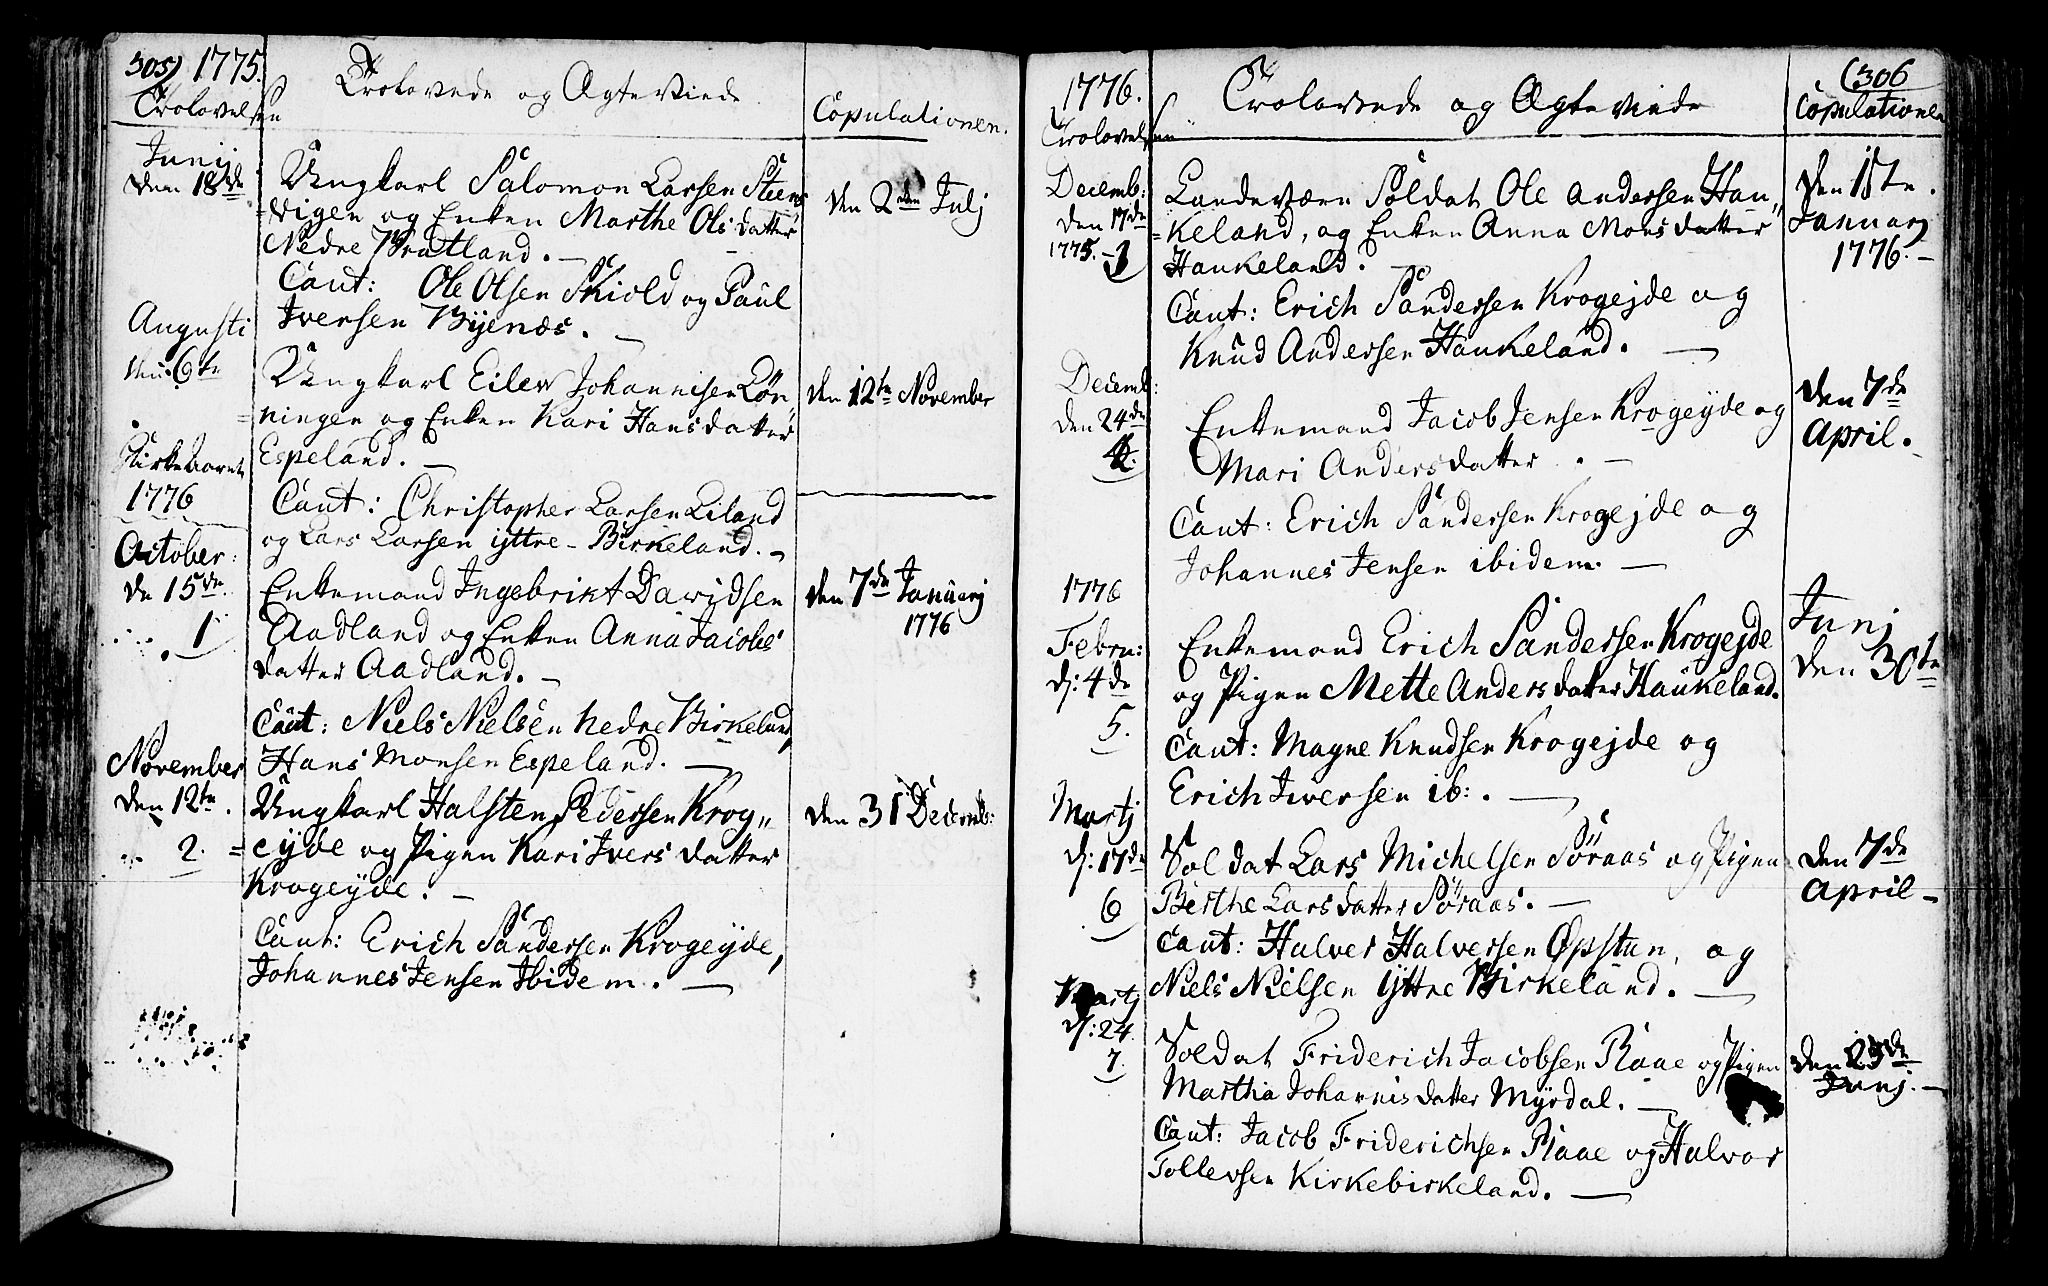 305) 1775.
Trolovelsen
Trolovede og Ægteviede
Copulationen.
Junij
den 18de
Ungkarl Salomon Larsen Steens
=vigen og Enken Marthe Ols datter
Nedre Bratland. —
Caut: Ole Olsen Skiold og Paul
Iversen Byenæs. —
den 2den Julj
Augusti
den 6te
Ungkarl Eilew Johannisen Lön„
=ningen og Enken Kari Hansdatter
Espeland. —
Caut: Christopher Larsen Liland
og Lars Larsen yttre-Birkeland. —
den 12te November
Kirkeaaret
1776
October:
de 15de.
1
Enkemand Ingebrikt Davidsen
Aadland og Enken Anna Jacobs
datter Aadland. —
Caut: Niels Nielsen nedre Birkeland,
Hans Monsen Espeland. —
den 7de Januarj
1776
November
den 12te.
2.
Ungkarl Halsten Pedersen Krog„
=eyde og Pigen Kari Ivers datter
Krogeyde. —
Caut: Erich Sandersen Krogeyde,
Johannes Jensen Ibidem. —
den 31 Decemb:
(306
1776.
Trolovelsen
Trolovede og Ægteviede
Copulationen
Decemb:
den 17de
1775. - 3
Landeværn Soldat Ole Andersen Hau„
=keland, og Enken Anna Monsdatter
Haukeland. —
Caut: Erich Sandersen Krogejde og
Knud Andersen Haukeland. —
Den 1ste.
Januarj
1776. —
Decemb:
den 24de
4.
Enkemand Jacob Jensen Krogeyde og
Mari Andersdatter . —
Caut: Erich Sandersen Krogejde og
Johannes Jensen ibidem. —
den 7de
April.
1776
Febru:
d: 4de
5.
Enkemand Erich Sandersen Krogejde
og Pigen Mette Anders datter Haukeland.
Caut: Magne Knudsen Krogejde og
Erich Iversen ib: . —
Junj
den 30te
Martj
d: 17de
6
Soldat Lars Michelsen Söraas og Pigen
Berthe Lars datter Söraas. —
Caut: Halver Halversen Øpstun, og
Niels Nielsen Yttre Birkeland. —
den 7de
April —
Martj
d: 24.
7.
Soldat Friderich Jacobsen Raae og Pigen
Martha Johannis datter Myrdal. —
Caut: Jacob Friderichsen Raae og Halvor
Tollevsen Kirkebirkeland. —
den 23de
Junj. —